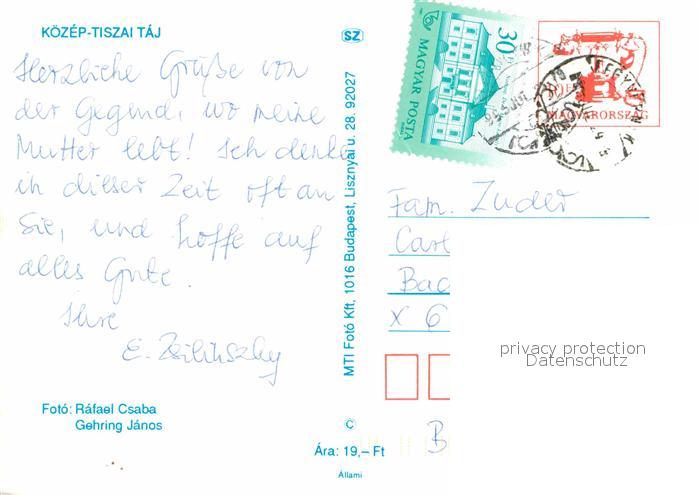 KÖZÉP-TISZAI TÁJ
SZ
Herzliche Grüße von
der Gegend, wo meine
Mutter lebt! Ich denke
in dieser Zeit oft an
Sie, und hoffe auf
alles Gute.
Ihre
E. Zsilinszky
Fotó: Ráfael Csaba
Gehring János
MTI Fotó Kft, 1016 Budapest, Lisznyai u. 28. 92027
C
Ára: 19,– Ft
Állami
30 Ft
MAGYAR POSTA
MAGYARORSZÁG
Fam. Zuder
Carl
Bad
X 6
B
privacy protection
Datenschutz